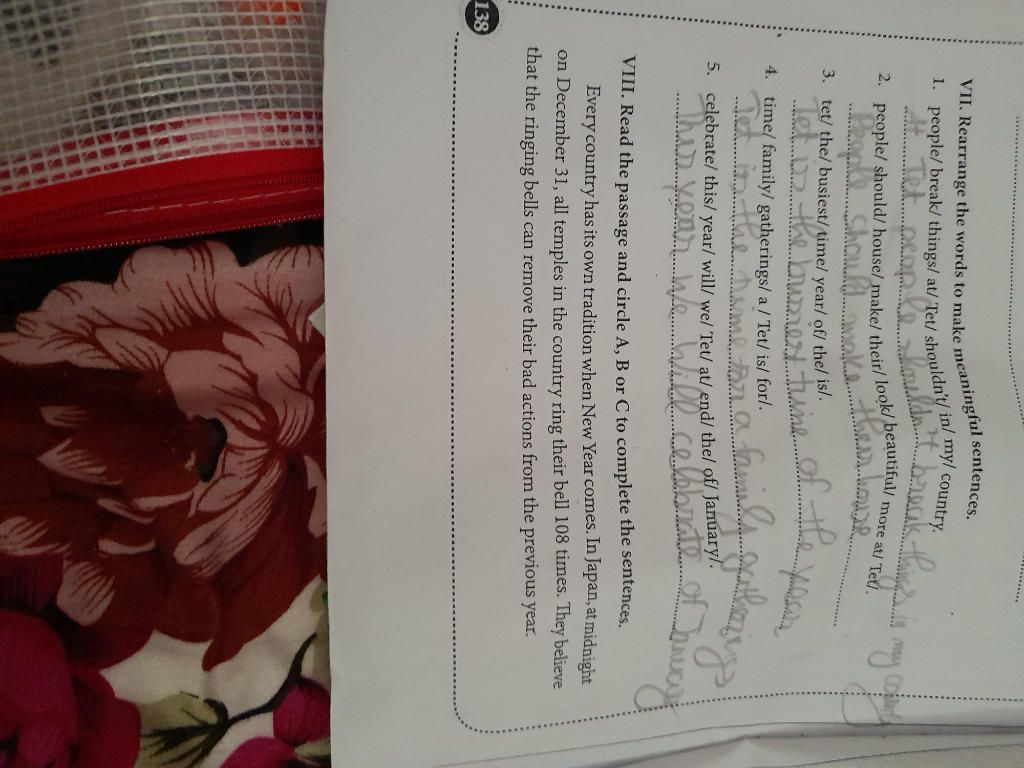 VII. Rearrange the words to make meaningful sentences.
1. people/ break/ things/ at/ Tet/ shouldn't/ in/ my/ country.
At Tet people shouldn't break things in my
2. people/ should/ house/ make/ their/ look/ beautiful/ more at/ Tet/.
People should make their house
3. tet/ the/ busiest/ time/ year/ of/ the/ is/.
Tet is the busiest time of the year
4. time/ family/ gatherings/ a / Tet/ is/ for/.
Tet is the time for a family gatherings
5. celebrate/ this/ year/ will/ we/ Tet/ at/ end/ the/ of/ January/.
This year We will celebrate of
VIII. Read the passage and circle A, B or C to complete the sentences.
Every country has its own tradition when New Year comes. In Japan, at midnight
on December 31, all temples in the country ring their bell 108 times. They believe
that the ringing bells can remove their bad actions from the previous year.
138